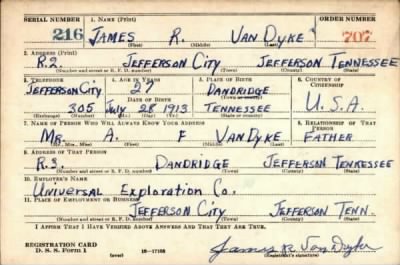 SERIAL NUMBER 1. NAME (Print) ORDER NUMBER
216 JAMES R. VAN DYKE 707
(First) (Middle) (Last)
2. ADDRESS (Print)
R.2. JEFFERSON CITY JEFFERSON TENNESSEE
(Number and street or R. F. D. number) (Town) (County) (State)
3. TELEPHONE 4. AGE IN YEARS 5. PLACE OF BIRTH 6. COUNTRY OF CITIZENSHIP
JEFFERSON CITY 27 DANDRIDGE
DATE OF BIRTH (Town or county)
305 July 28 1913 TENNESSEE U.S.A.
(Exchange) (Number) (Mo.) (Day) (Yr.) (State or country)
7. NAME OF PERSON WHO WILL ALWAYS KNOW YOUR ADDRESS 8. RELATIONSHIP OF THAT PERSON
MR. A. F VAN DYKE FATHER
(Mr., Mrs., Miss) (First) (Middle) (Last)
9. ADDRESS OF THAT PERSON
R.3. DANDRIDGE JEFFERSON TENNESSEE
(Number and street or R. F. D. number) (Town) (County) (State)
10. EMPLOYER'S NAME
Universal Exploration Co.
11. PLACE OF EMPLOYMENT OR BUSINESS
JEFFERSON CITY JEFFERSON TENN.
(Number and street or R. F. D. number) (Town) (County) (State)
I AFFIRM THAT I HAVE VERIFIED ABOVE ANSWERS AND THAT THEY ARE TRUE.
REGISTRATION CARD
D. S. S. Form 1 (over) 16—17105 James R Van Dyke
(Registrant's signature)